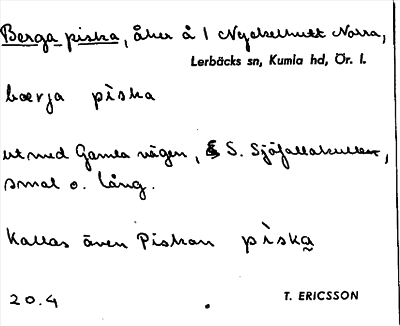 Berga piska, åker å 1 Nyckelhult Norra,
Lerbäcks sn, Kumla hd, Ör. l.
bærja pìska
ut med Gamla vägen, S. Sjöfallakullen,
smal o. lång.
Kallas även Piskan pìska̰
20.4
T. ERICSSON